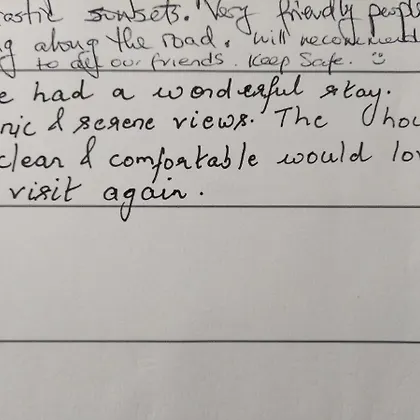 rastic sunsets. Very friendly people
g along the road. will recommend
to all our friends. Keep Safe. ☺
e had a wonderful stay.
nic & serene views. The hou
clean & comfortable would lo
visit again.